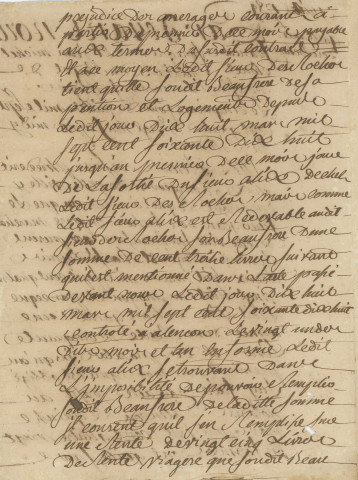 prejudice des arrerages courants a
partir du premier de ce mois payable
aux termes dudit contract
Et au moyen Ledit sieur des Rochers
tient quitte sondit Beaufrere de sa
pention et Logement depuis
Ledit jour dix huit mars mil
sept cent soixante dix huit
jusquau premier de ce mois jour
De La sortie du sieur alix de chez
Ledit sieur des Rochers, mais comme
Ledit sieur alix est Redevable audit
sieur des Rochers son Beaufrere dune
somme de cent trente livres suivant
quil est mentionné dans Lacte passé
devant nous Ledit jour dix huit
mars mil sept cent soixante dix huit
controlé a alencon Le vingt un de
Dit mois et an en forme Ledit
sieur alix se trouvant dans
Limpossibilité de pouvoir remplir
sondit Beaufrere de laditte somme
il consent quil sen Remplisse sur
une Rente de vingt cinq Livres
De Rente viagere que sondit Beau